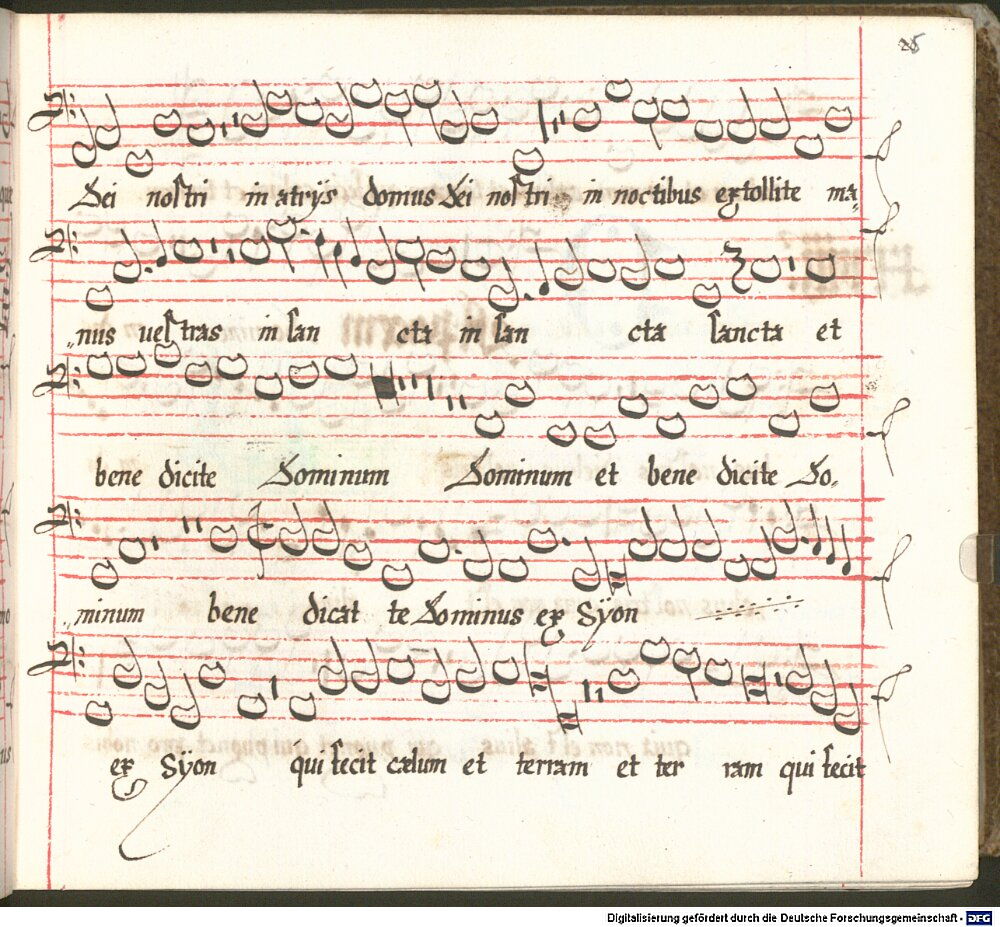 25
Dei nostri in atrijs domus Dei nostri in noctibus extollite ma-
nus vestras in san cta in san cta sancta et
bene dicite Dominum Dominum et bene dicite Do-
minum bene dicat te Dominus ex Sÿon
ex Sÿon qui fecit cælum et terram et ter ram qui fecit
Digitalisierung gefördert durch die Deutsche Forschungsgemeinschaft - DFG